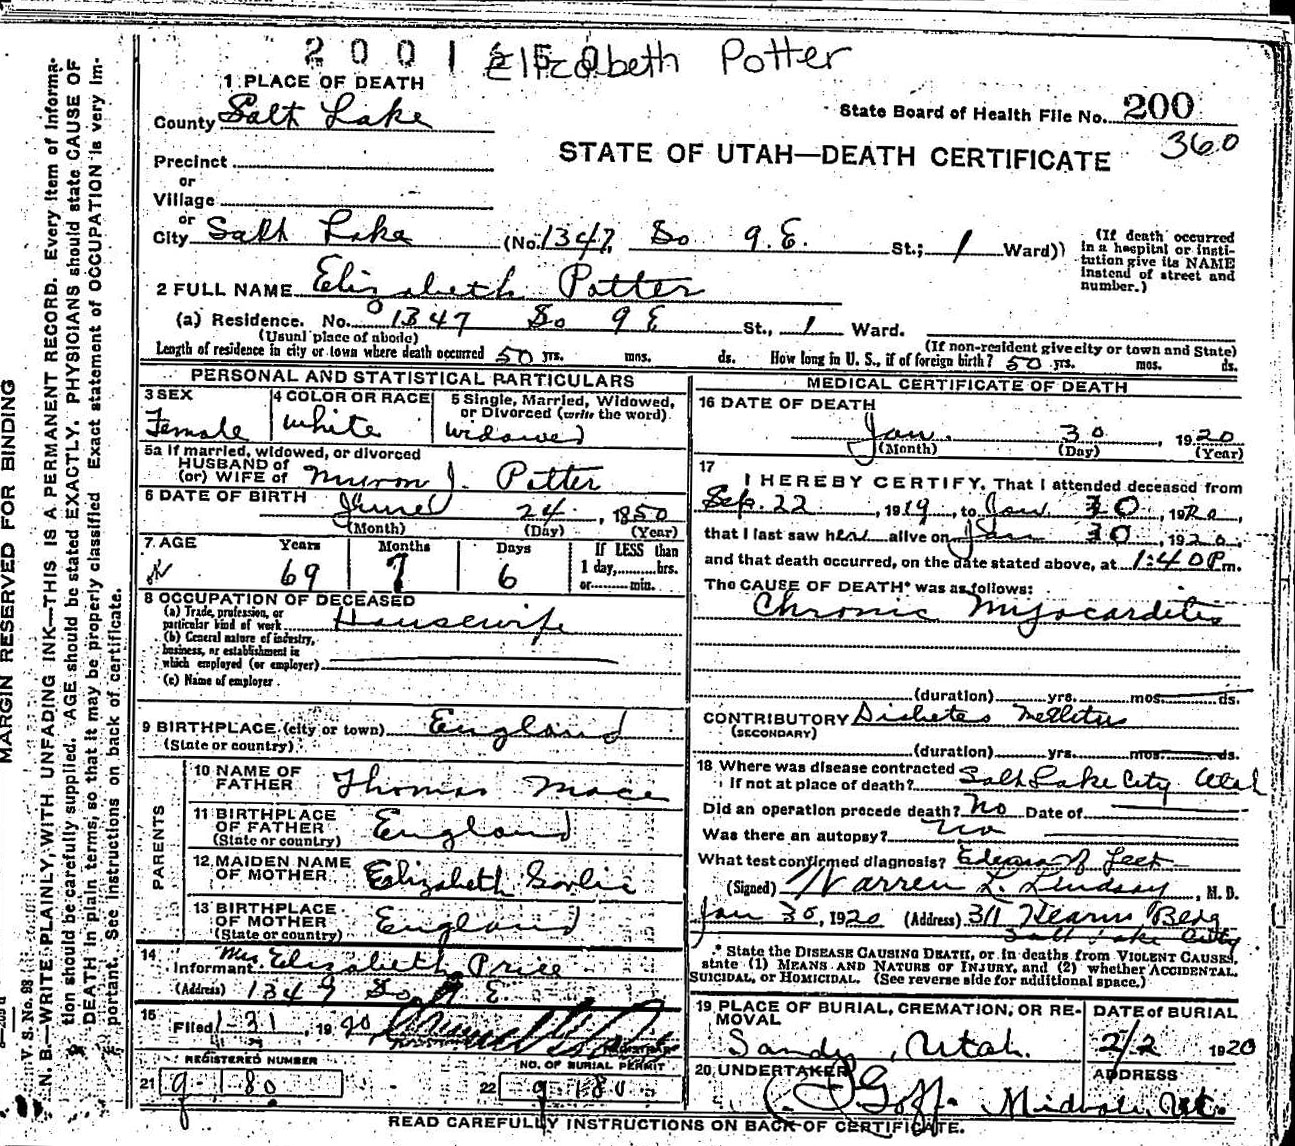 2001250 Elizabeth Potter
1 PLACE OF DEATH
County Salt Lake
State Board of Health File No. 200
360
STATE OF UTAH—DEATH CERTIFICATE
Precinct
or
Village
or
City Salt Lake (No. 1347 So 9 E. St.; 1 Ward))
(If death occurred in a hospital or institution give its NAME instead of street and number.)
2 FULL NAME Elizabeth Potter
(a) Residence. No. 1347 So 9 E St., 1 Ward.
(Usual place of abode) (If non-resident give city or town and State)
Length of residence in city or town where death occurred 50 yrs. mos. ds. How long in U. S., if of foreign birth? 50 yrs. mos. ds.
PERSONAL AND STATISTICAL PARTICULARS
3 SEX
Female
4 COLOR OR RACE
White
5 Single, Married, Widowed, or Divorced (write the word)
Widowed
5a If married, widowed, or divorced
HUSBAND of
(or) WIFE of Myron J. Potter
6 DATE OF BIRTH June 24, 1850
(Month) (Day) (Year)
7. AGE Years Months Days If LESS than
69 7 6 1 day,.....hrs.
or.....min.
8 OCCUPATION OF DECEASED
(a) Trade, profession, or particular kind of work Housewife
(b) General nature of industry, business, or establishment in which employed (or employer)
(c) Name of employer
9 BIRTHPLACE (city or town) England
(State or country)
PARENTS
10 NAME OF FATHER Thomas Mace
11 BIRTHPLACE OF FATHER England
(State or country)
12 MAIDEN NAME OF MOTHER Elizabeth
13 BIRTHPLACE OF MOTHER England
(State or country)
14
Informant Mrs. Elizabeth Price
(Address) 1349 So 9 E.
15
Filed 1-31, 1920
REGISTERED NUMBER
21 9-180
NO. OF BURIAL PERMIT
22 9-180
MEDICAL CERTIFICATE OF DEATH
16 DATE OF DEATH
Jan. 30, 1920
(Month) (Day) (Year)
17
I HEREBY CERTIFY, That I attended deceased from
Sep. 22, 1919, to Jan 30, 1920,
that I last saw her alive on Jan 30, 1920,
and that death occurred, on the date stated above, at 1:40 P m.
The CAUSE OF DEATH* was as follows:
Chronic Myocarditis
(duration) yrs. mos. ds.
CONTRIBUTORY Diabetes Mellitus
(SECONDARY)
(duration) yrs. mos. ds.
18 Where was disease contracted
If not at place of death? Salt Lake City Utah
Did an operation precede death? No Date of
Was there an autopsy? No
What test confirmed diagnosis?
(Signed) Warren L. Lindsay, M. D.
Jan 30, 1920 (Address) 311 Kearns Bldg
Salt Lake City
* State the DISEASE CAUSING DEATH, or in deaths from VIOLENT CAUSES, state (1) MEANS AND NATURE OF INJURY, and (2) whether ACCIDENTAL, SUICIDAL, or HOMICIDAL. (See reverse side for additional space.)
19 PLACE OF BURIAL, CREMATION, OR REMOVAL
Sandy, Utah.
DATE of BURIAL
2/2 1920
20 UNDERTAKER
Goff
ADDRESS
Midvale, Ut.
READ CAREFULLY INSTRUCTIONS ON BACK OF CERTIFICATE.
MARGIN RESERVED FOR BINDING
V. S. No. 98
N. B.—WRITE PLAINLY, WITH UNFADING INK—THIS IS A PERMANENT RECORD. Every item of information should be carefully supplied. AGE should be stated EXACTLY. PHYSICIANS should state CAUSE OF DEATH in plain terms, so that it may be properly classified. Exact statement of OCCUPATION is very important. See instructions on back of certificate.